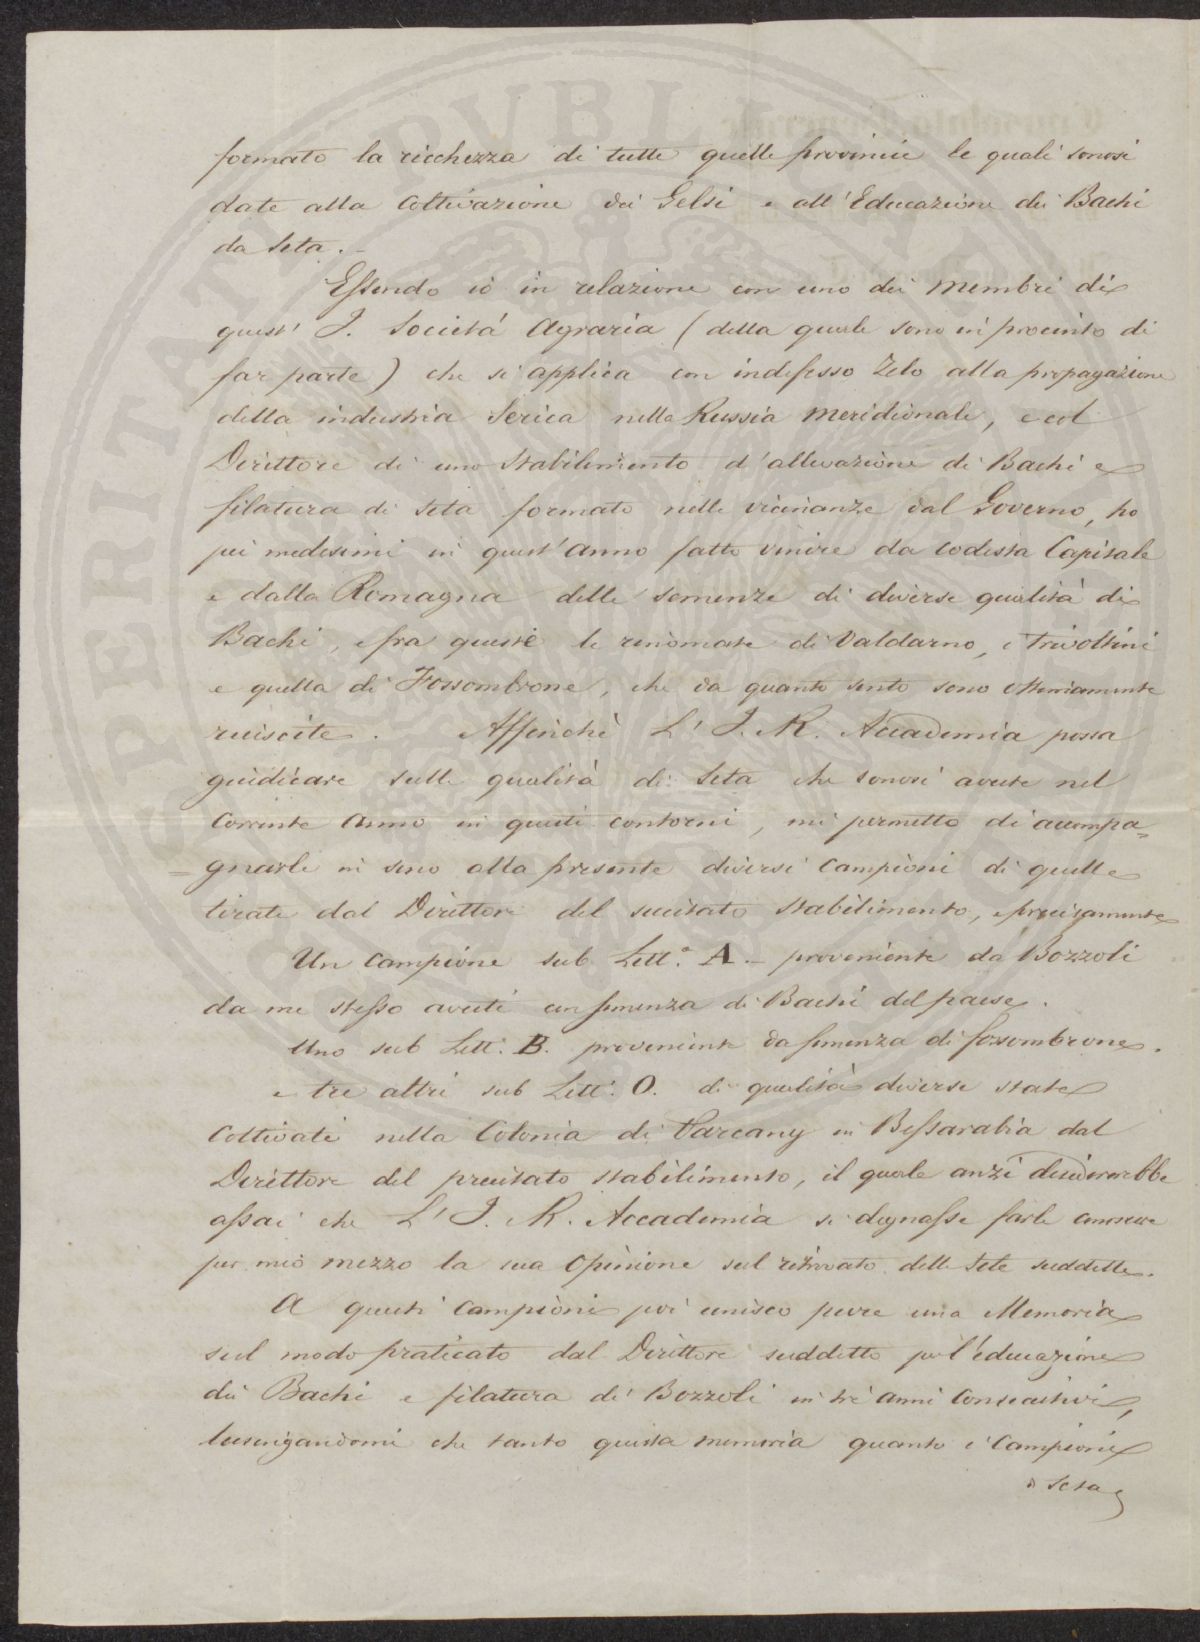 formato la ricchezza di tutte quelle provincie le quali sonosi
date alla Coltivazione dei Gelsi e all'Educazione dei Bachi
da Seta. -
Essendo io in relazione con uno dei membri di
quest' I. Società Agraria (della quale sono in procinto di
far parte) che si applica con indefesso Zelo alla propagazione
della industria Serica nella Russia Meridionale, e col
Direttore di uno Stabilimento d'allevazione di Bachi e
filatura di seta formato nelle vicinanze dal Governo, ho
pei medesimi in quest'anno fatto venire da codesta Capitale
e dalla Romagna delle semenze di diverse qualità di
Bachi, e fra queste le rinomate di Valdarno, i Trivoltini
e quella di Fossombrone, che da quanto sento sono ottimamente
riuscite. Affinchè L' I. R. Accademia possa
guidicare sulle qualità di Seta che sonosi avute nel
Corrente Anno in questi contorni, mi permetto di accompa=
=gnarle in seno alla presente diversi Campioni di quelle
tirate dal Direttore del succitato Stabilimento, e precisamente
Un Campione sub Lett.a A. - proveniente da Bozzoli
da me stesso avuti con semenza di Bachi del paese.
Uno sub Lett. B. proveniente da semenza di fossombrone.
e tre altri sub Lett. O. di qualità diverse state
Coltivati nella Colonia di Parcany in Bessarabia dal
Direttore del precitato stabilimento, il quale anzi desidererebbe
assai che L' I. R. Accademia si degnasse farle conoscere
per mio mezzo la sua Opinione sul ritrovato delle Sete suddette.
A questi Campioni poi unisco pure una Memoria
sul modo praticato dal Direttore suddetto per l'educazione
dei Bachi e filatura di Bozzoli in tre anni Consecutivi,
lusingandomi che tanto questa memoria quanto i Campioni
di seta
PERITATI PVBLICAE